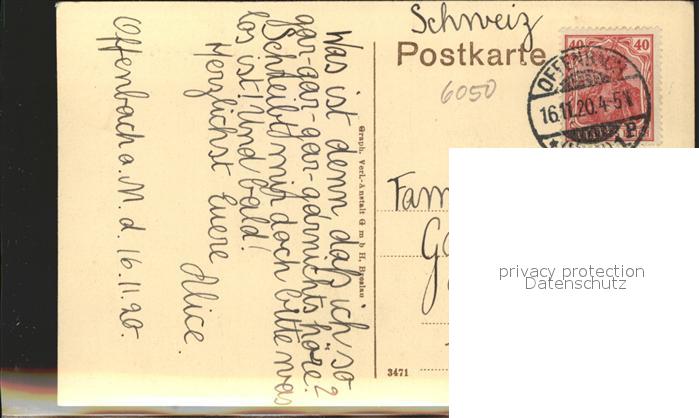 Schweiz
Postkarte
6050
40 40
OFFENBACH
16.11.20.4-5N
Fam
privacy protection
Datenschutz
3471
Graph. Verl.-Anstalt G m b H. Breslau
Offenbach a. M. d. 16.11.20.
Was ist denn, daß ich so
gar-gar-gar-garnichts höre?
Schreibt mir doch bitte was
los ist! Und bald!
Herzlichst Euere
Alice.